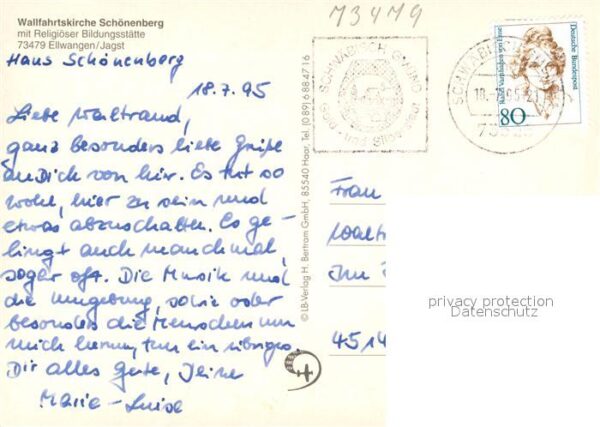 Wallfahrtskirche Schönenberg
mit Religiöser Bildungsstätte
73479 Ellwangen/Jagst
73479
Haus Schönenberg
18.7.95
Liebe Waltraud,
ganz besonders liebe Grüße
an Dich von hier. Es tut so
wohl, hier zu sein und
etwas abzuschalten. Es ge-
lingt auch manchmal,
sogar oft. Die Musik und
die Umgebung, sowie oder
besonders die Menschen um
mich herum, tun ein übriges.
Dir alles Gute, Deine
Marie-Luise
© LB-Verlag H. Bertram GmbH, 85540 Haar, Tel. (0 89) 6 88 47 16
SCHWÄBISCH GMÜND
Gold- und Silberstadt
SCHWÄBISCH
Deutsche Bundespost
80
Frau
Walt
Im
4514
privacy protection
Datenschutz